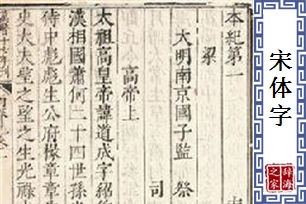 本紀第一
梁
大明南京國子監 祭
司
高帝上
太祖高皇帝諱道成字紹
漢相國蕭何二十四世孫
侍中彪彪生公府掾章章
史大夫望之望之生光祿
宋体字
辞海之家